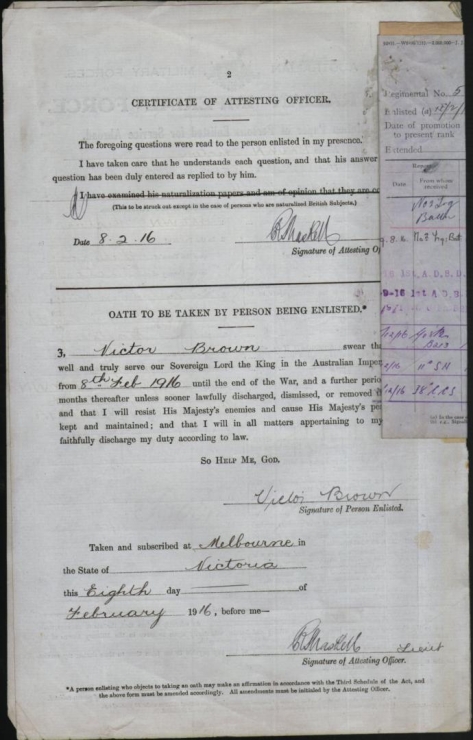 2
CERTIFICATE OF ATTESTING OFFICER.
The foregoing questions were read to the person enlisted in my presence.
I have taken care that he understands each question, and that his answer
question has been duly entered as replied to by him.
I have examined his naturalization papers and am of opinion that they are co
(This to be struck out except in the case of persons who are naturalized British Subjects.)
Date 8.2.16
Signature of Attesting O
OATH TO BE TAKEN BY PERSON BEING ENLISTED.*
I, Victor Brown swear the
well and truly serve our Sovereign Lord the King in the Australian Imper
from 8th Feb 1916 until the end of the War, and a further perio
months thereafter unless sooner lawfully discharged, dismissed, or removed
and that I will resist His Majesty's enemies and cause His Majesty's pe
kept and maintained; and that I will in all matters appertaining to my
faithfully discharge my duty according to law.
SO HELP ME, GOD.
Victor Brown
Signature of Person Enlisted.
Taken and subscribed at Melbourne in
the State of Victoria
this Eighth day of
February 1916, before me—
Lieut
Signature of Attesting Officer.
*A person enlisting who objects to taking an oath may make an affirmation in accordance with the Third Schedule of the Act, and
the above form must be amended accordingly. All amendments must be initialed by the Attesting Officer.
Regimental No. 5
Enlisted (a)
Date of promotion
to present rank
Extended
Date
From whom
received